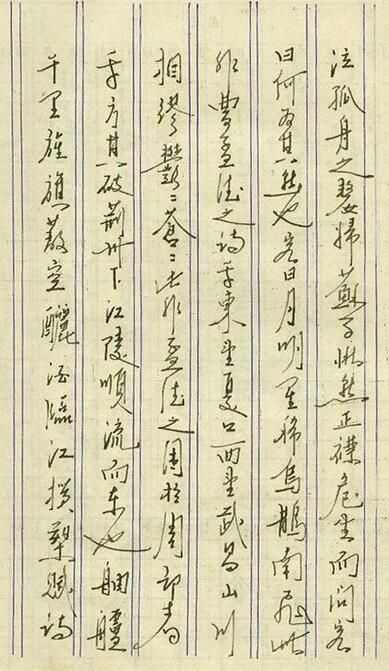 泣孤舟之嫠婦蘇子愀然正襟危坐而問客
曰何為其然也客曰月明星稀烏鵲南飛此
非曹孟德之詩乎東望夏口西望武昌山川
相繆鬱鬱蒼蒼此非孟德之困於周郎者
乎方其破荊州下江陵順流而東也舳艫
千里旌旗蔽空釃酒臨江橫槊賦詩